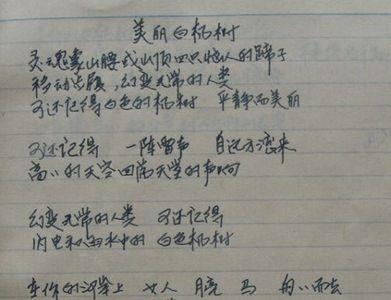 美丽白杨树
灵魂像山腰或山顶四只恼人的蹄子
移动步履,幻变无常的人类
可还记得白色的杨树 平静而美丽
可还记得 一阵雷声 自远方滚来
高高的天空回荡天堂的声响
幻变无常的人类 可还记得
闪电和雨水中的 白色杨树
在你的河岸上 女人 月亮 马 而去